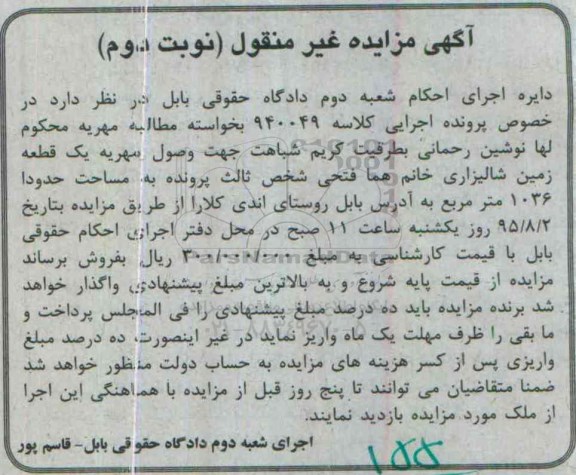 آگهی مزایده غیر منقول (نوبت دوم)
دایره اجرای احکام شعبه دوم دادگاه حقوقی بابل در نظر دارد در
خصوص پرونده اجرایی کلاسه ۹۴۰۰۴۹ بخواسته مطالبه مهریه محکوم
لها نوشین رحمانی بطرفیت کریم شباهت جهت وصول مهریه یک قطعه
زمین شالیزاری خانم هما فتحی شخص ثالث پرونده به مساحت حدودا
۱۰۳۶ متر مربع به آدرس بابل روستای اندی کلارا از طریق مزایده بتاریخ
۹۵/۸/۲ روز یکشنبه ساعت ۱۱ صبح در محل دفتر اجرای احکام حقوقی
بابل با قیمت کارشناسی به مبلغ ریال بفروش برساند
مزایده از قیمت پایه شروع و به بالاترین مبلغ پیشنهادی واگذار خواهد
شد برنده مزایده باید ده درصد مبلغ پیشنهادی را فی المجلس پرداخت و
ما بقی را ظرف مهلت یک ماه واریز نماید در غیر اینصورت ده درصد مبلغ
واریزی پس از کسر هزینه های مزایده به حساب دولت منظور خواهد شد
ضمنا متقاضیان می توانند تا پنج روز قبل از مزایده با هماهنگی این اجرا
از ملک مورد مزایده بازدید نمایند.
اجرای شعبه دوم دادگاه حقوقی بابل- قاسم پور